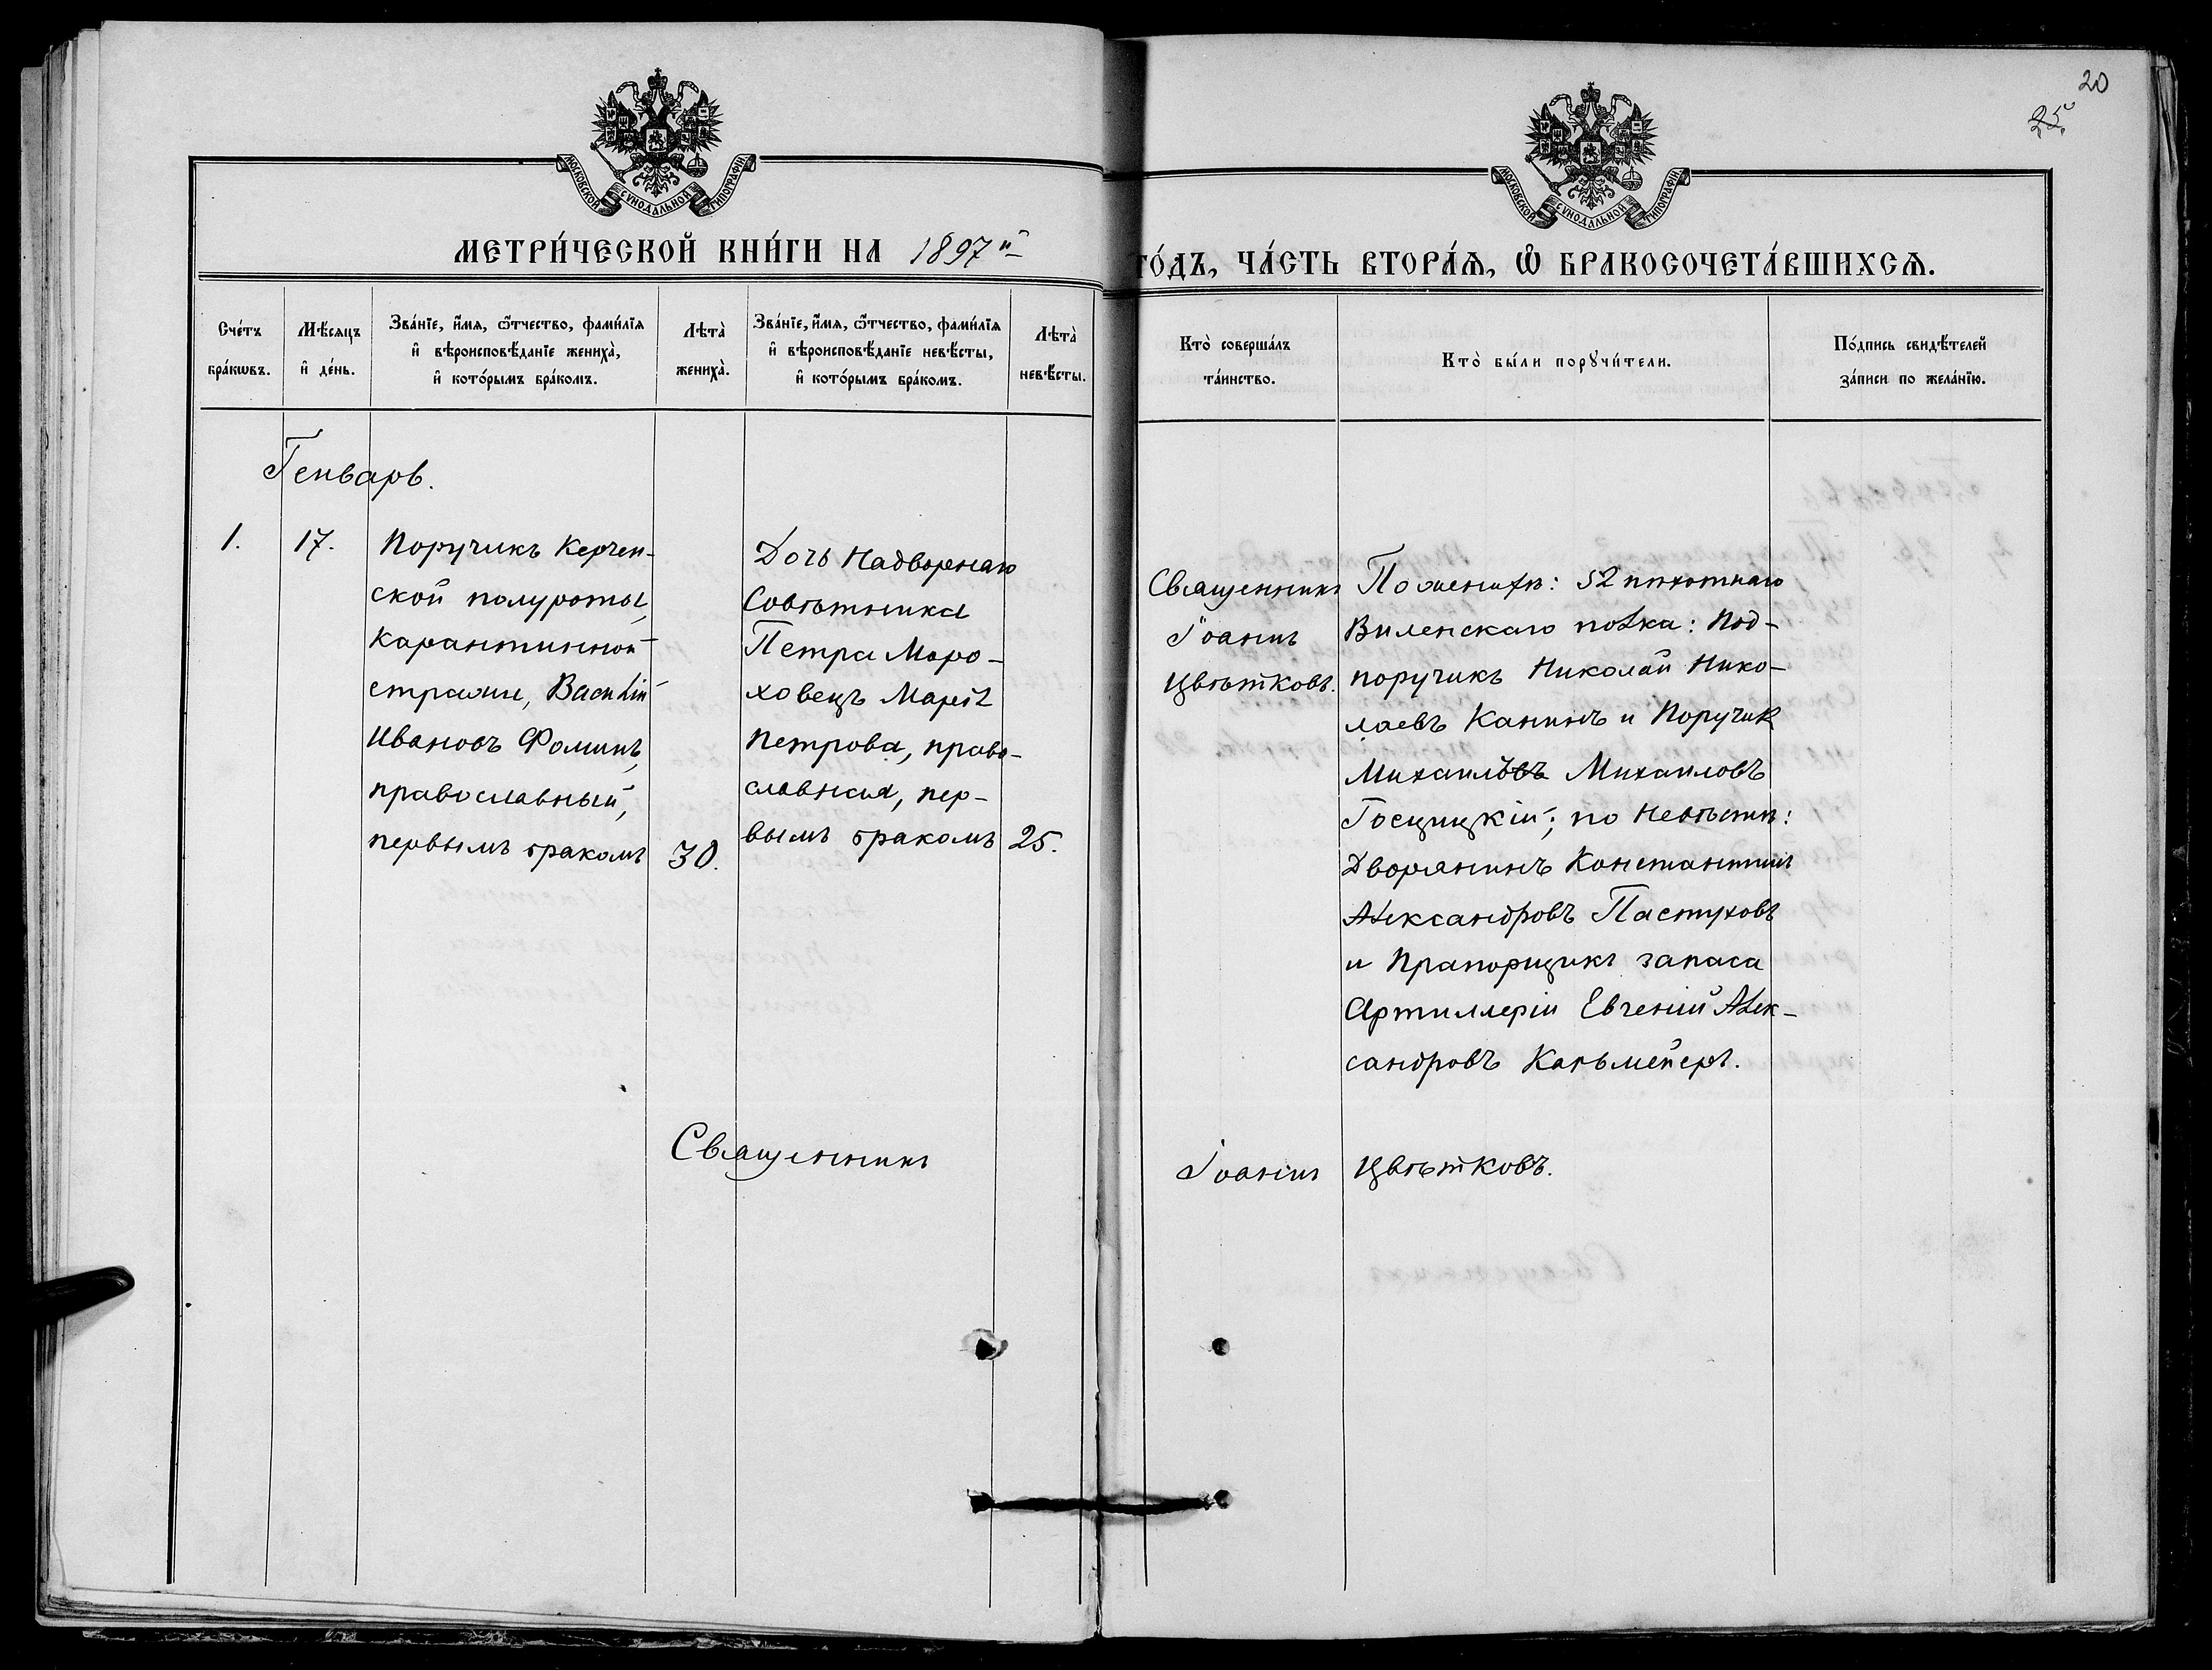 20
25
МОСКОВСКОЙ СѴНОДАЛЬНОЙ ТИПОГРАФІИ
МОСКОВСКОЙ СѴНОДАЛЬНОЙ ТИПОГРАФІИ
МЕТРИ́ЧЕСКОЙ КНИ́ГИ НА 1897й
ГО́ДЪ, ЧА́СТЬ ВТОРА́Ѧ, Ѡ҆ БРАКОСОЧЕТА́ВШИХСѦ.
Сче́тъ
бра́кѡвъ.
Мѣ́сяцъ
и҆ де́нь.
Зва́нїе, и҆́мѧ, ѻ҆́тчество, фами́лїѧ
и҆ вѣроисповѣ́данїе жениха̀,
и҆ кото́рымъ бра́комъ.
Лѣта̀
жениха̀.
Зва́нїе, и҆́мѧ, ѻ҆́тчество, фами́лїѧ
и҆ вѣроисповѣ́данїе невѣ́сты,
и҆ кото́рымъ бра́комъ.
Лѣта̀
невѣ́сты.
Кто̀ соверша́лъ
та́инство.
Кто̀ бы́ли порꙋчи́тели.
По́дпись свидѣ́телей
за́писи по жела́нїю.
Генварь.
1.
17.
Поручикъ Керчен-
ской полуроты,
Карантинной
стражи, Василій
Ивановъ Фоминъ,
православный,
первымъ бракомъ
30.
Дочь Надворнаго
Совѣтника
Петра Моро-
ховецъ Марія
Петрова, право-
славная, пер-
вымъ бракомъ
25.
Священникъ
Іоаннъ
Цвѣтковъ.
По женихѣ: 52 пѣхотнаго
Виленскаго полка: Под-
поручикъ Николай Нико-
лаевъ Канинъ и Поручик
Михаилъ Михаиловъ
Госцицкій; по Невѣстѣ:
Дворянинъ Константинъ
Александровъ Пастуховъ
и Прапорщикъ запаса
Артиллеріи Евгеній Алек-
сандровъ Кальмейеръ.
Священникъ Іоаннъ Цвѣтковъ.